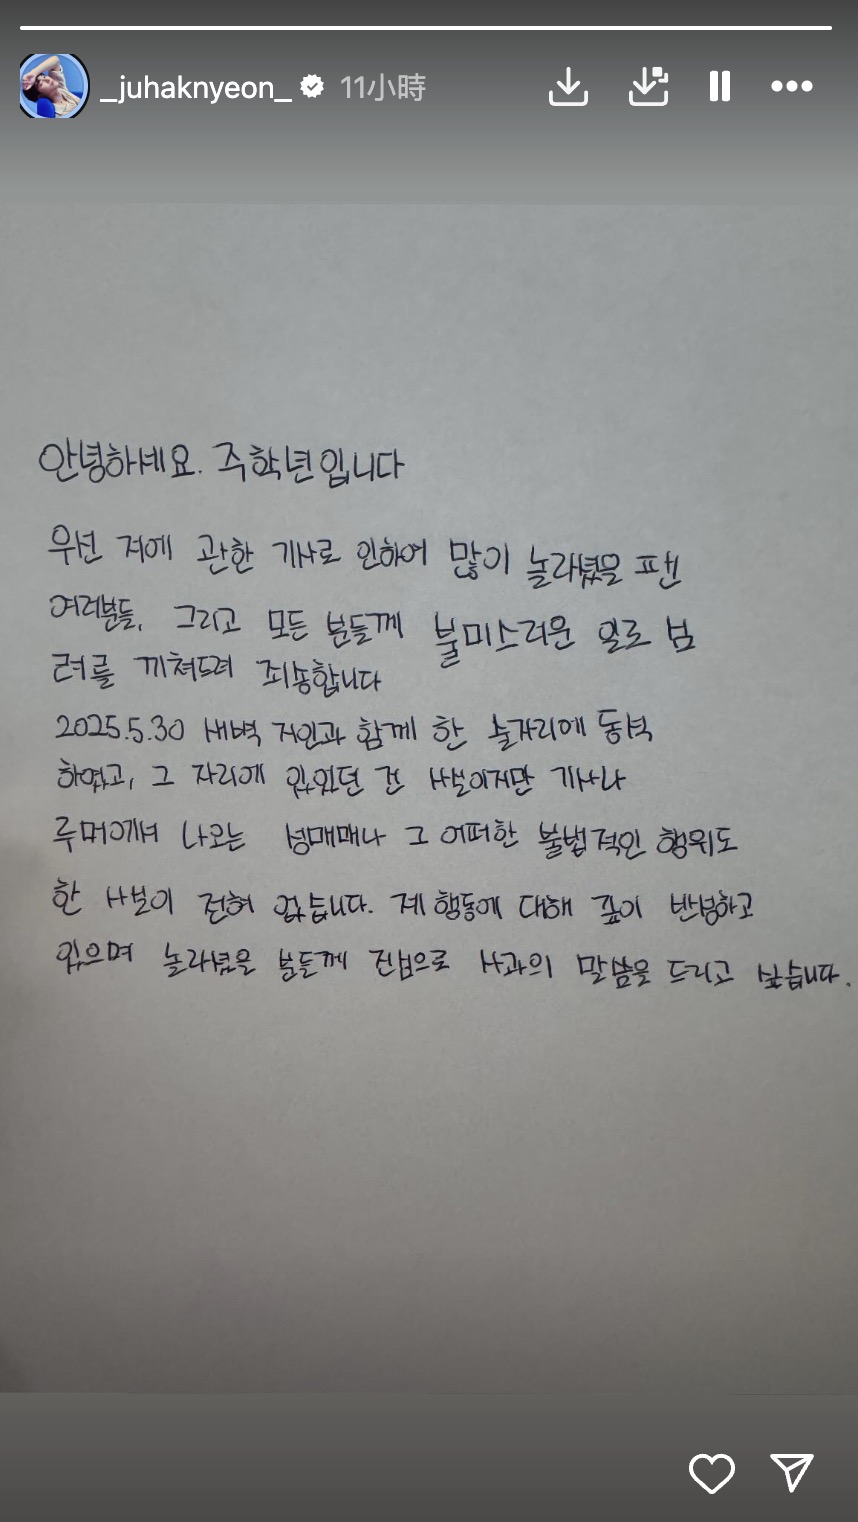 _juhaknyeon_ 11小時
안녕하세요. 주학년입니다
우선 저에 관한 기사로 인하여 많이 놀라셨을 팬
여러분들, 그리고 모든 분들께 불미스러운 일로 심
려를 끼쳐드려 죄송합니다
2025.5.30 새벽 지인과 함께 한 술자리에 동석
하였고, 그 자리에 있었던 건 사실이지만 기사나
루머에서 나오는 성매매나 그 어떠한 불법적인 행위도
한 사실이 전혀 없습니다. 제 행동에 대해 깊이 반성하고
있으며 놀라셨을 분들께 진심으로 사과의 말씀을 드리고 싶습니다.